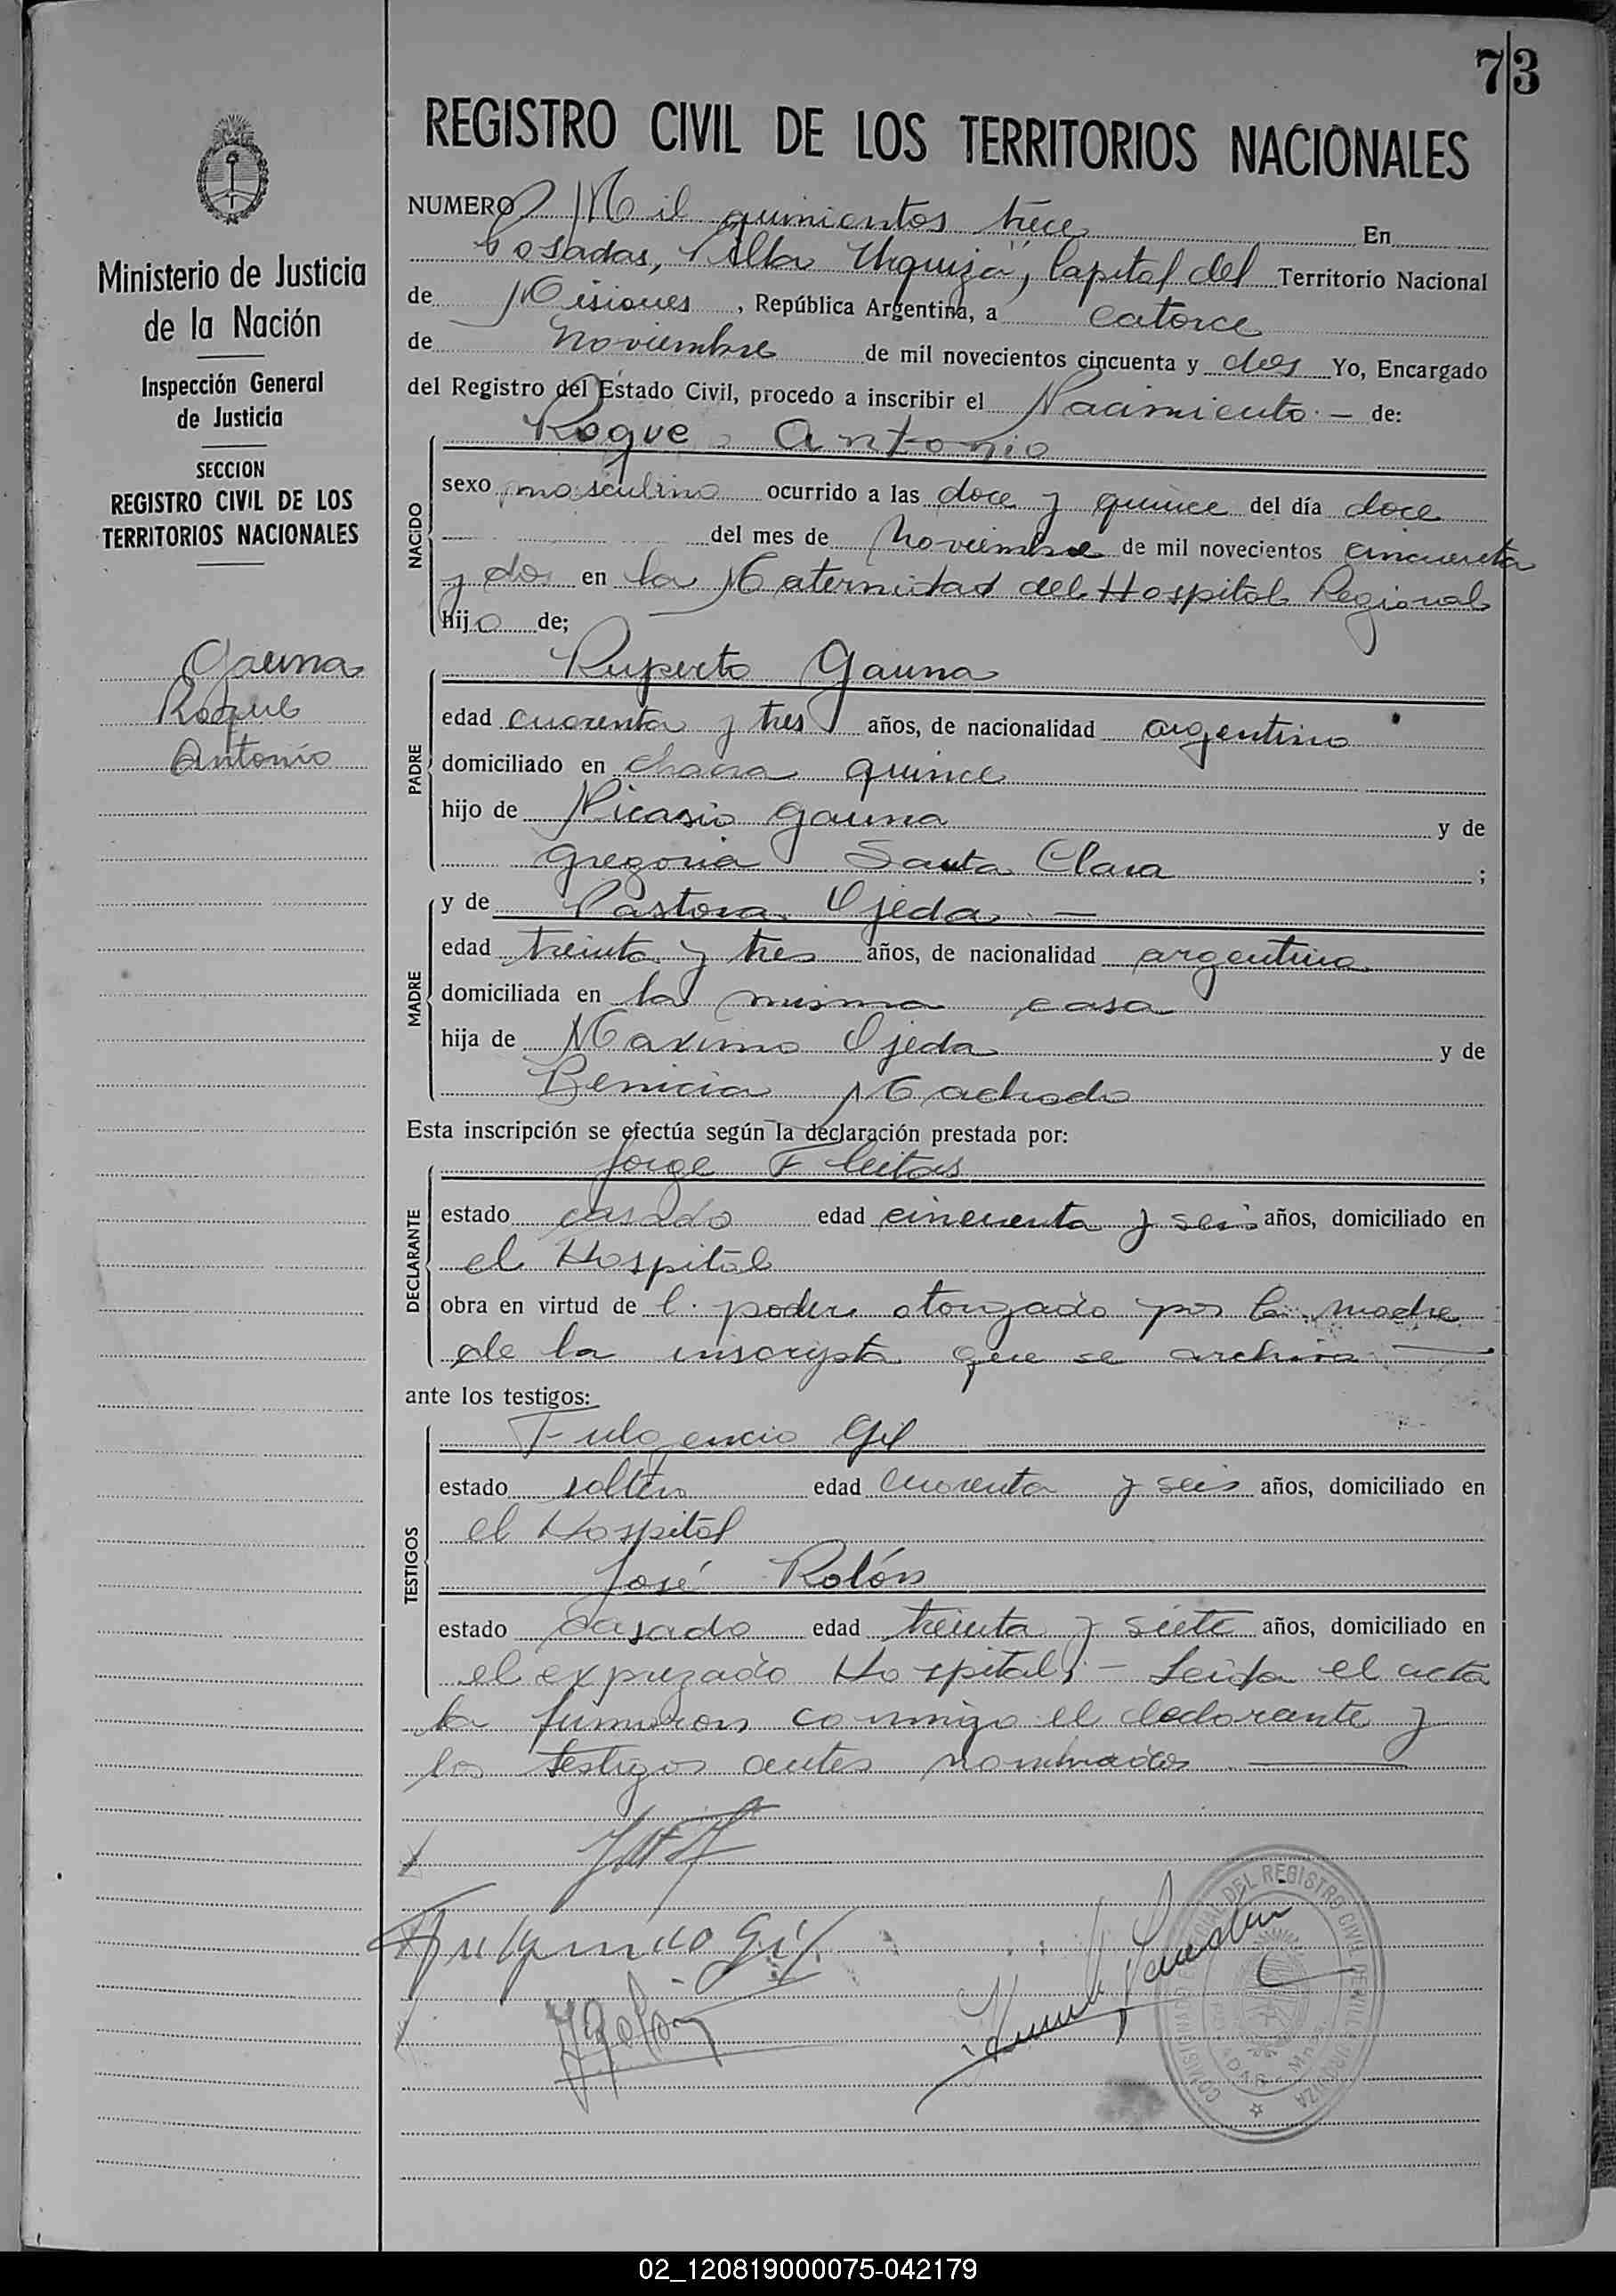 73
REGISTRO CIVIL DE LOS TERRITORIOS NACIONALES
Ministerio de Justicia
de la Nación
Inspección General
de Justicia
SECCION
REGISTRO CIVIL DE LOS
TERRITORIOS NACIONALES
Gauna
Roque
Antonio
NUMERO Mil quinientos trece En
Posadas, "Villa Urquiza", Capital del Territorio Nacional
de Misiones, República Argentina, a catorce
de Noviembre de mil novecientos cincuenta y dos Yo, Encargado
del Registro del Estado Civil, procedo a inscribir el Nacimiento.— de:
NACIDO
Roque Antonio
sexo masculino ocurrido a las doce y quince del día doce
del mes de Noviembre de mil novecientos cincuenta
y dos en la Maternidad del Hospital Regional
hijo de; —
PADRE
Ruperto Gauna
edad cuarenta y tres años, de nacionalidad argentino
domiciliado en chacra quince
hijo de Nicasio Gauna y de
Gregoria Santa Clara ;
MADRE
y de Pastora Ojeda.—
edad treinta y tres años, de nacionalidad argentina
domiciliada en la misma casa
hija de Maximo Ojeda y de
Benicia Machado
Esta inscripción se efectúa según la declaración prestada por:
DECLARANTE
Jorge Fleitas
estado casado edad cincuenta y seis años, domiciliado en
el Hospital
obra en virtud de l. poder otorgado por la madre
de la inscripta que se archiva —
ante los testigos:
TESTIGOS
Fulgencio Gil
estado soltero edad cuarenta y seis años, domiciliado en
el Hospital
José Rolón
estado casado edad treinta y siete años, domiciliado en
el exprezado Hospital;— Leida el acta
la firmaron conmigo el declarante y
los testigos antes nombrados —
Fulgencio Gil
JRolón
DEL REGISTRO CIVIL
URQUIZA
02_120819000075-042179